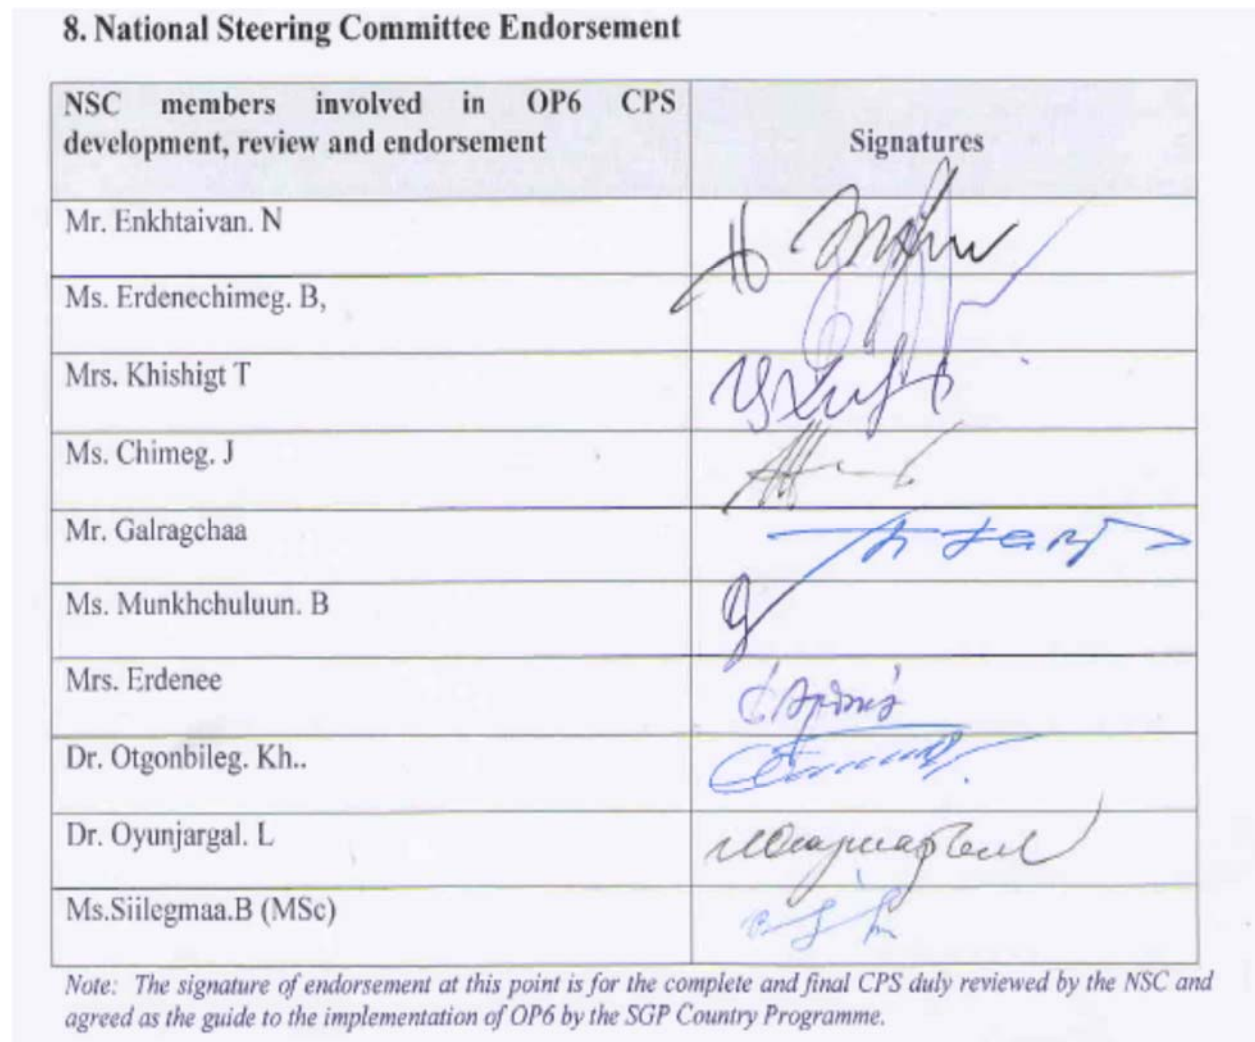 8. National Steering Committee Endorsement
NSC members involved in OP6 CPS
development, review and endorsement
Signatures
Mr. Enkhtaivan. N
Ms. Erdenechimeg. B,
Mrs. Khishigt T
Ms. Chimeg. J
Mr. Galragchaa
Ms. Munkhchuluun. B
Mrs. Erdenee
Dr. Otgonbileg. Kh..
Dr. Oyunjargal. L
Ms.Siilegmaa.B (MSc)
Note: The signature of endorsement at this point is for the complete and final CPS duly reviewed by the NSC and
agreed as the guide to the implementation of OP6 by the SGP Country Programme.